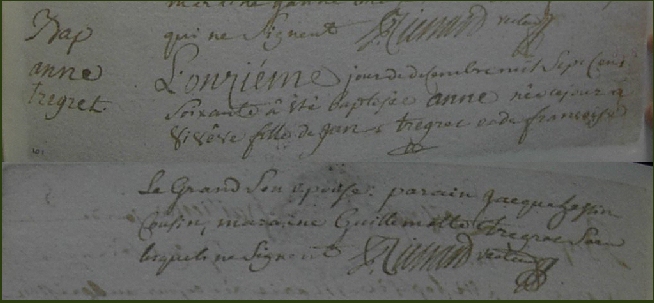 Bap
anne
tregret.
qui ne Signent Riuuard recteur
L'onziéme jour de decembre mil Sept Cent
Soixante à êté baptisée anne née ce jour à
fille de jan tregret et de francoise
Le Grand Son epouse: parain jacque
Cousin, maraine Guillemette tregret Sœur
lesquels ne Signent Riuuard recteur